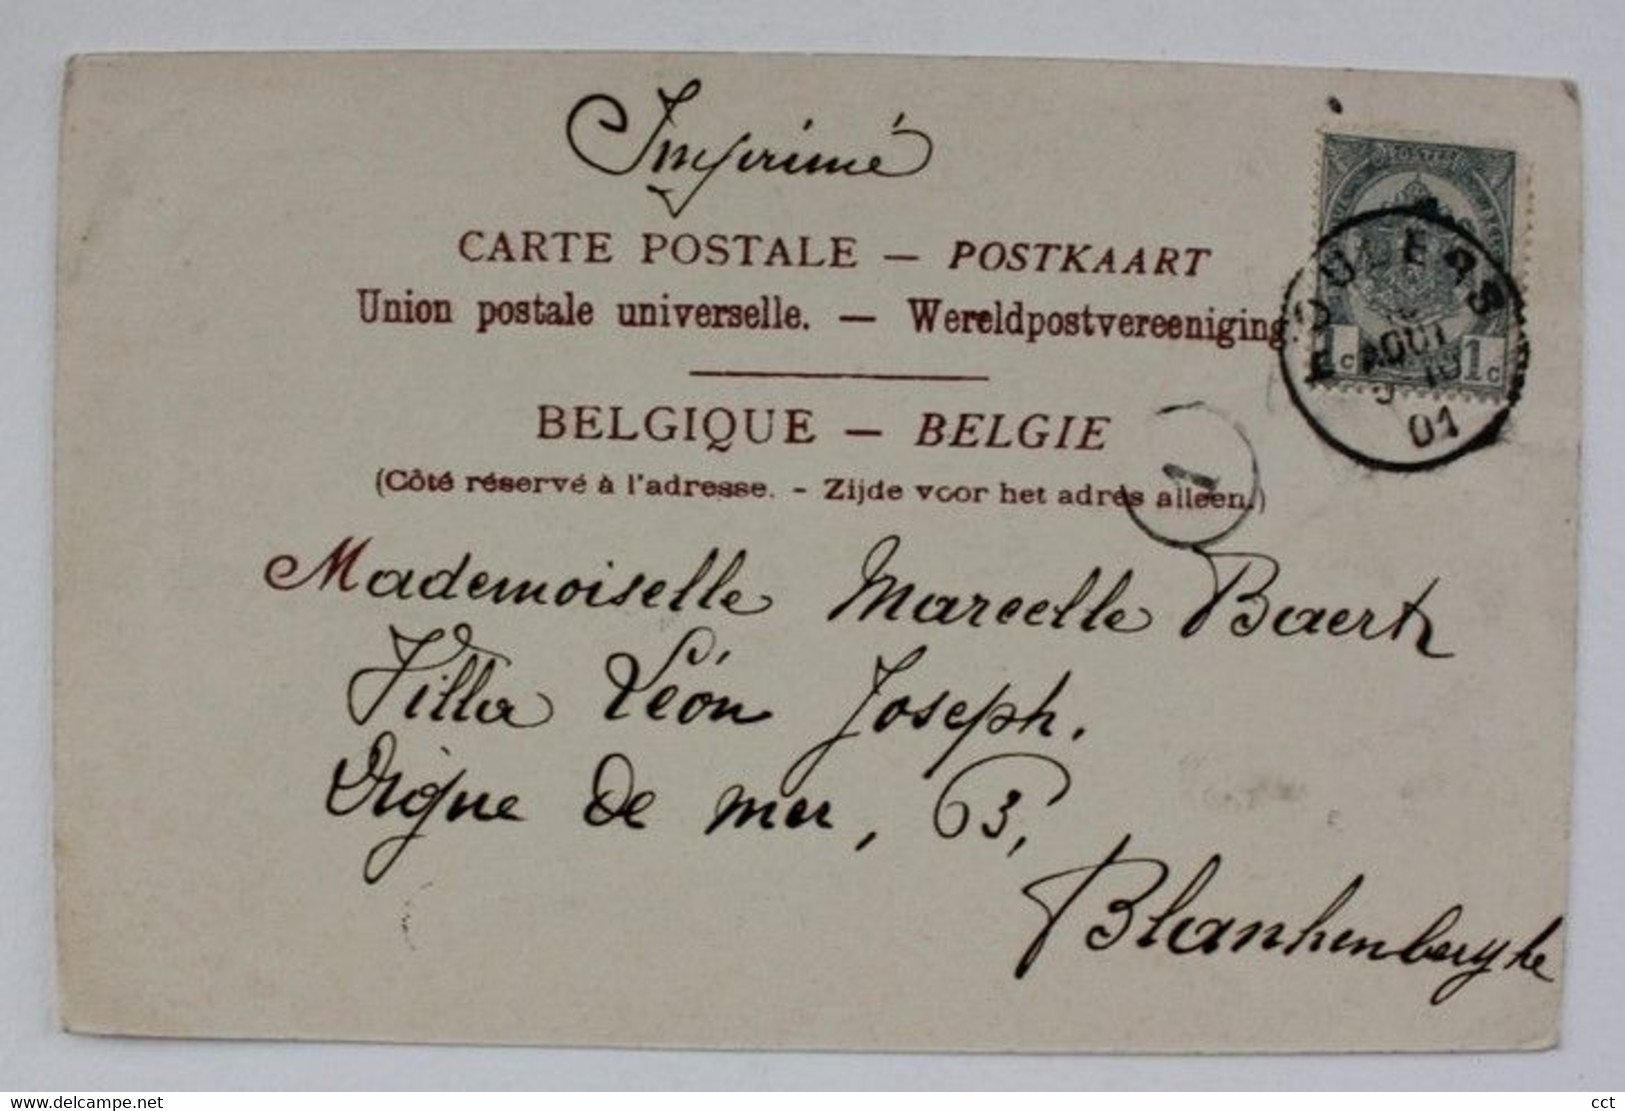 Imprimé
CARTE POSTALE — POSTKAART
Union postale universelle. — Wereldpostvereeniging.
BELGIQUE — BELGIE
(Côté réservé à l'adresse. - Zijde voor het adres alleen.)
1
1c 1c
AOUT
01
Mademoiselle Marcelle Baert
Villa Léon Joseph.
Digue de mer, 63,
Blankenberghe
www.delcampe.net
cct